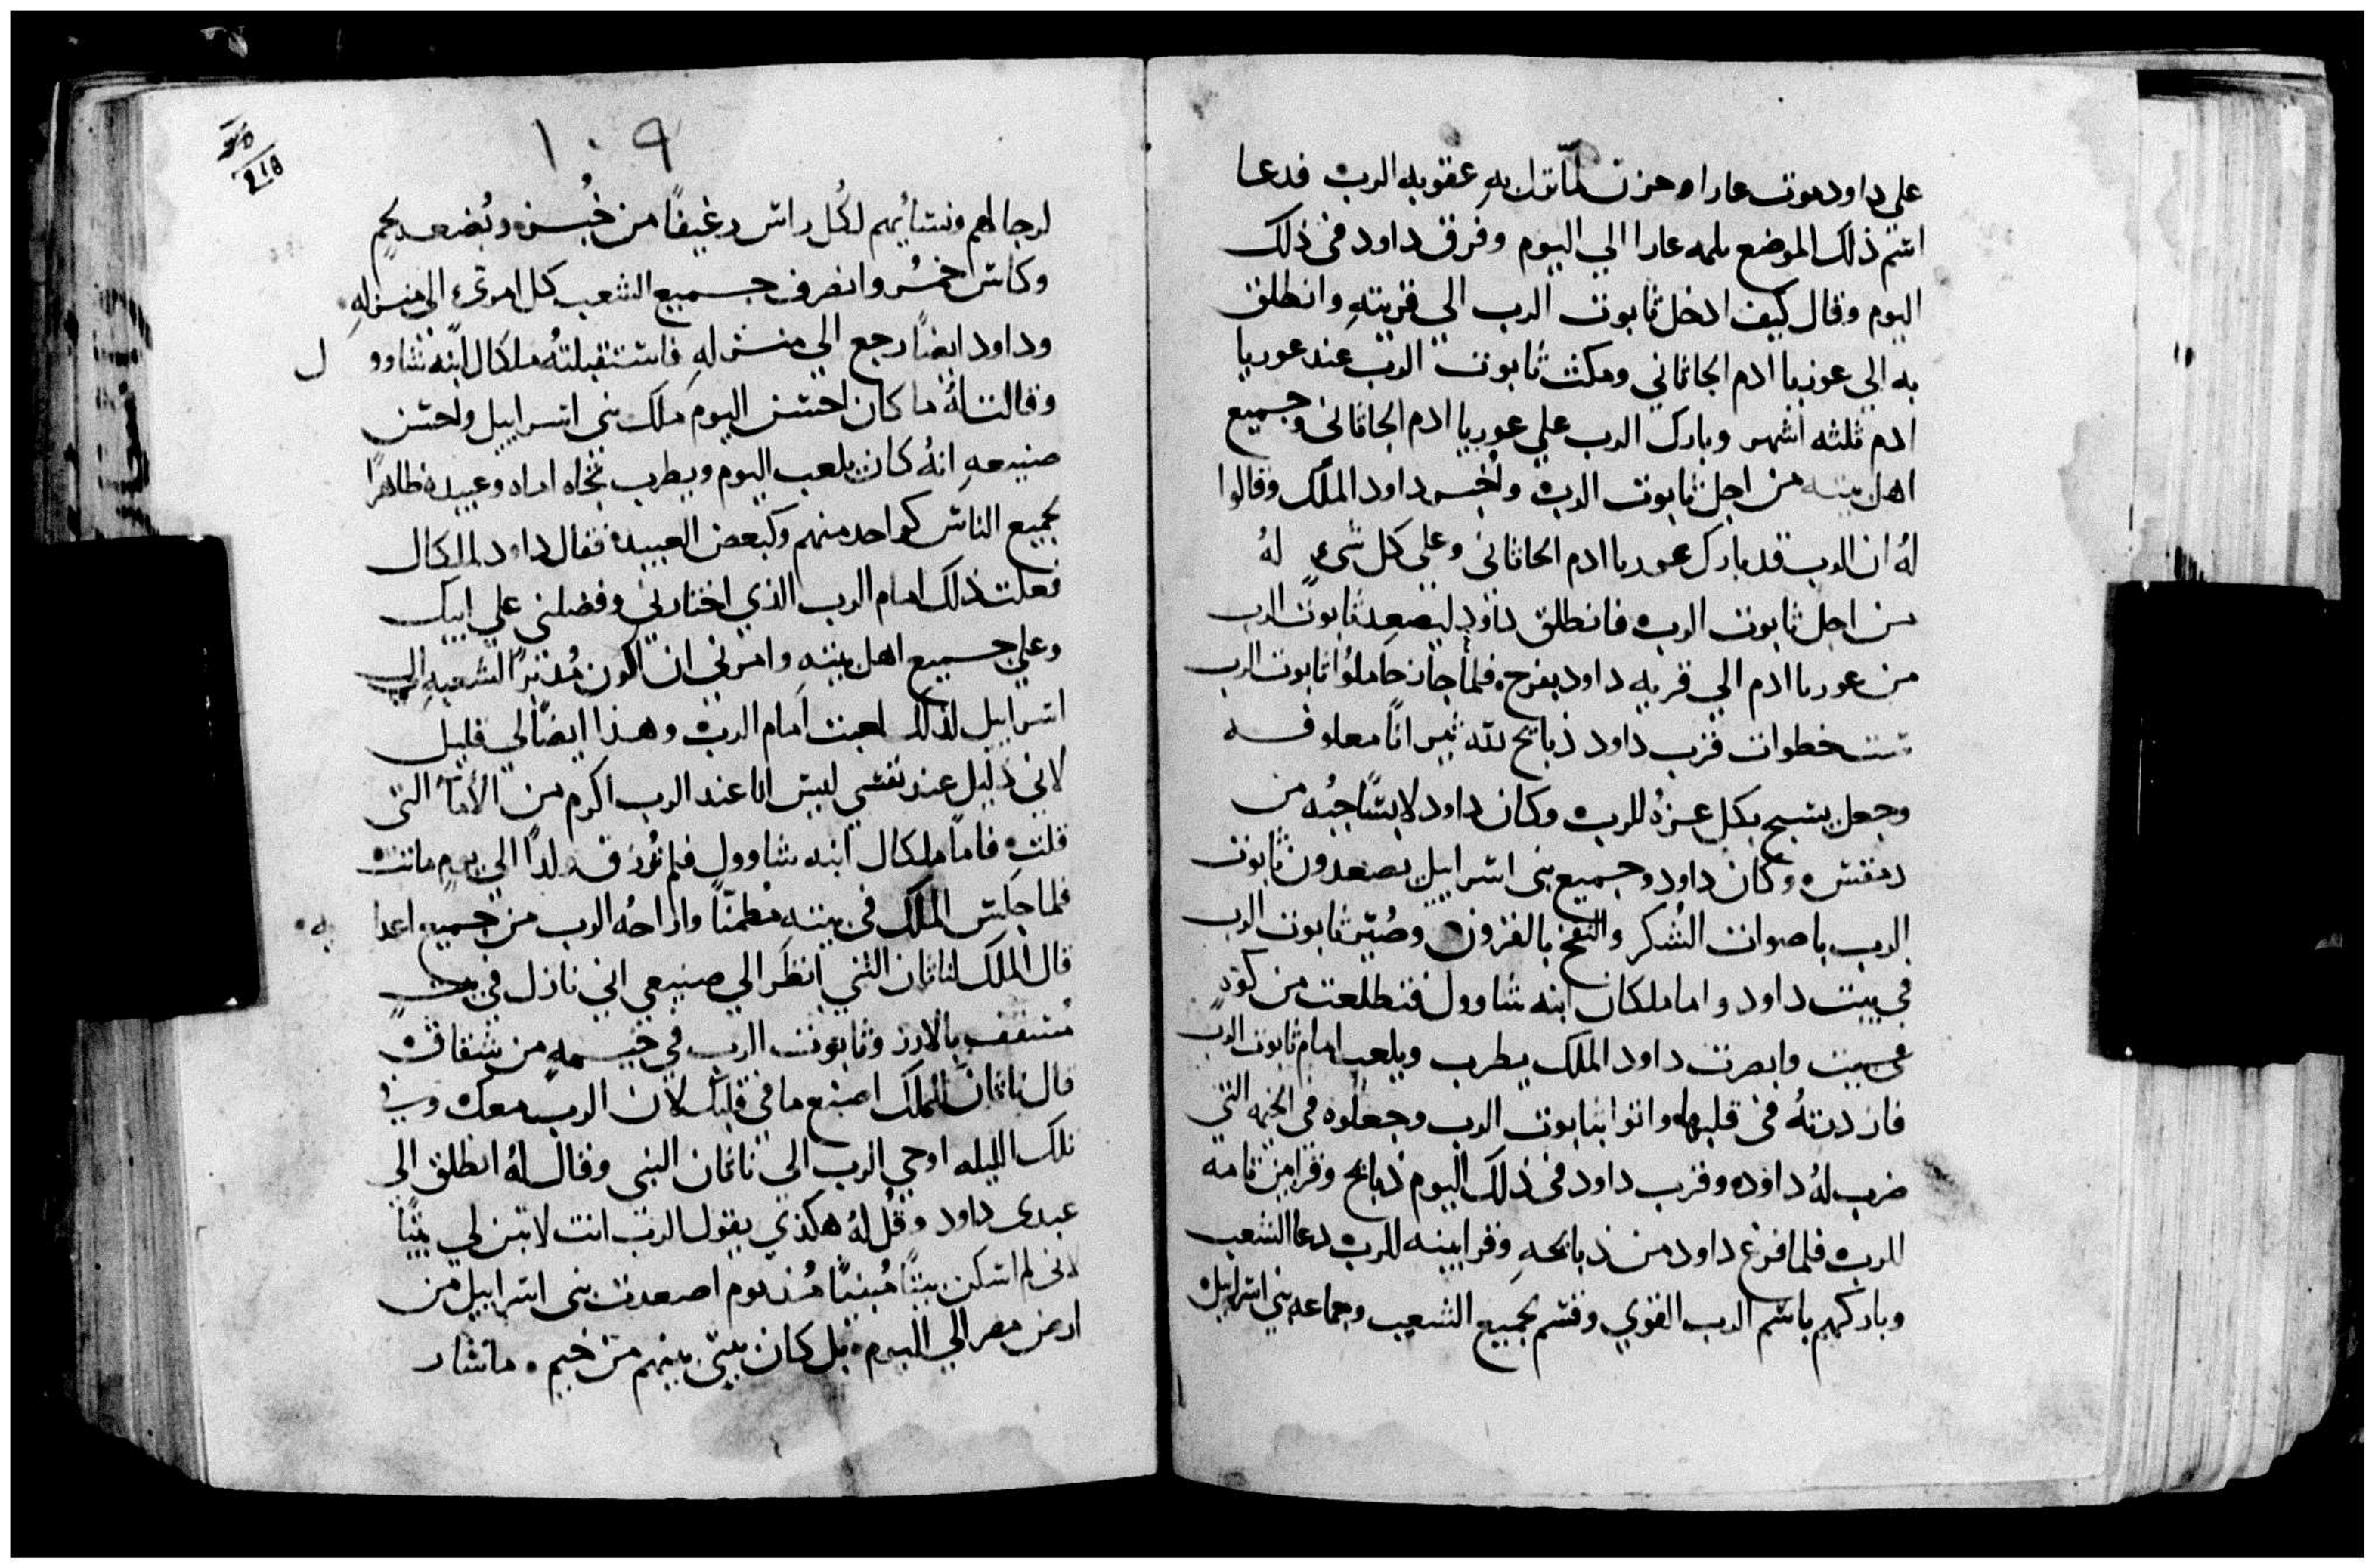 علي داود موت عارا وحزن لما نزل به عقوبه الرب فدعا
اسم ذلك الموضع ثلمه عارا الي اليوم وفرق داود في ذلك
اليوم وقال كيف ادخل ثابوت الرب الي قريته وانطلق
به الي عوزيا ادم الجاثاني ومكث ثابوت الرب عند عوريا
ادم ثلثه اشهر وبارك الرب علي عوريا ادم الجاثاني وجميع
اهل بيته من اجل ثابوت الرب واخبر داود الملك وقالوا
لهُ ان الرب قد بارك عوريا ادم الجاثاني وعلي كل شيء لهُ
من اجل ثابوت الرب فانطلق داود ليصعد ثابوت الرب
من عوريا ادم الي قريه داود بفرح فلما جاز حاملوا ثابوت الرب
ست خطوات قرب داود ذبايح لله ثيرانًا معلوفه
وجعل يسبح بكل عزهُ للرب وكان داود لابسًا جبُه من
دمقس وكان داود وجميع بني اسراييل يصعدون ثابوت
الرب باصوات الشُكر والنفخ بالقرون وصُيّر ثابوت الرب
في بيت داود واما ملكان ابنه شاوول فتطلعت من كوةٍ
في بيت وابصرت داود الملك يطرب ويلعب امام ثابوت الرب
فازدرتهُ في قلبها واتوا بثابوت الرب وجعلوه في الخيمه التي
ضرب لهُ داود وقرب داود في ذلك اليوم ذبايح وقرابين تامه
للرب فلما فرغ داود من ذبايحهِ وقرابينه للرب دعا الشعب
وباركهم باسم الرب القوي وقسم لجميع الشعب وجماعه بني اسراييل
١٠٩
لرجالهم ونسائهم لكُل راس رغيفًا من خُبز وبُضعه لحمٍ
وكاس خمرُ وانصرف جميع الشعب كل امرىءٍ الي منزلهِ
وداود ايضًا رجع الي منزلهِ فاستقبلتهُ ملكال ابنه شاوول
وقالت لهُ ما كان احسن اليوم ملك بني اسراييل واحسن
صنيعهِ انهُ كان يلعب اليوم ويطرب تجاه اماه وعبيده ظاهرًا
لجميع الناس كواحد منهم وكبعض العبيد فقال داود لملكال
فعلت ذلك امام الرب الذي اختارني وفضلني علي ابيك
وعلي جميع اهل بيته وامرني ان اكون مُدبرًا لشعبهِ
اسراييل لذلك لعبت امام الرب وهذا ايضًا لي قليل
لاني ذليل عند نفسي ليس انا عند الرب اكرم من الأمآ التي
قلتِ فامًا ملكال ابنه شاوول فلم تُرزق ولدًا الي يوم ماتت
فلما جلس الملك في بيته مطمنًا واراحهُ الرب من جميع اعدايه
قال الملك لناثان النبي انظر الي صنيعي اني نازل في بيت
مُسقف بالارز وثابوت الرب في خيمهٍ من شقاق
قال ناثان للملك اصنع ما في قلبك لان الرب معك وفي
تلك الليله اوحي الرب الي ناثان النبي وقال لهُ انطلق الي
عبدي داود وقُل لهُ هكذي يقول الرب انت لا تبن لي بيتًا
لاني لم اسكن بيتًا مُبنيًا مُنذ يوم اصعدت بني اسراييل من
ارض مصر الي اليوم بل كان بيتي بينهم من خيم